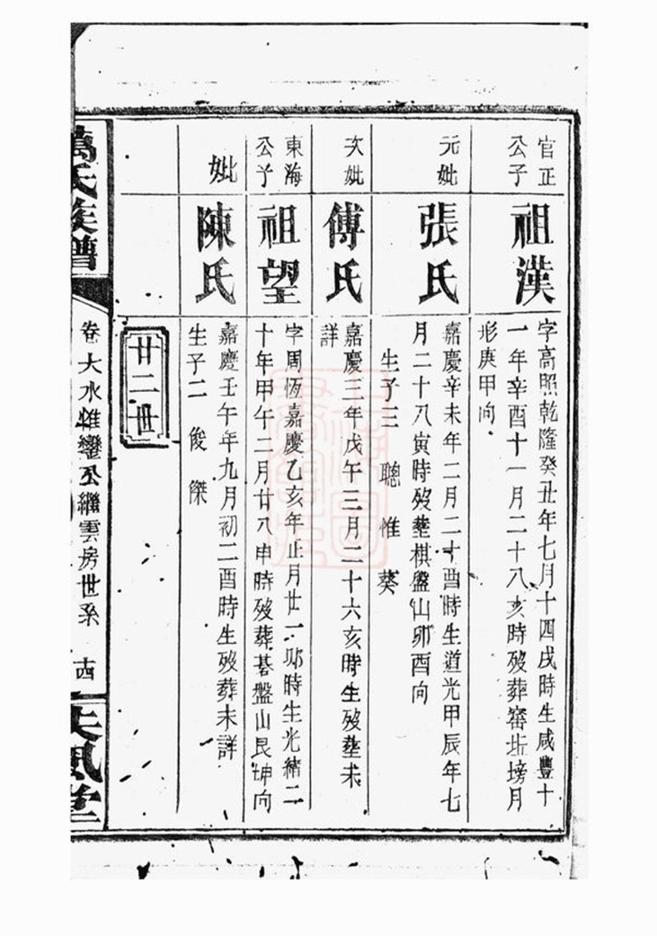 官正
公子
祖漢
字高照乾隆癸丑年七月十四戌時生咸豐十
一年辛酉十一月二十八亥時歿葬窰坵塝月
形庚甲向
元妣
張氏
嘉慶辛未年二月二十酉時生道光甲辰年七
月二十八寅時歿塟棋盤山卯酉向
生子三 聰 惟 葵
次妣
傅氏
嘉慶三年戊午三月二十六亥時生歿塟未
詳
東海
公子
祖望
字周恆嘉慶乙亥年正月廿一卯時生光緒二
十年甲午二月廿八申時歿葬碁盤山艮坤向
妣
陳氏
嘉慶壬午年九月初二酉時生歿葬未詳
生子二 俊 傑
廿二世
萬氏族譜
卷大水 公繼雲房世系
古
夫風堂